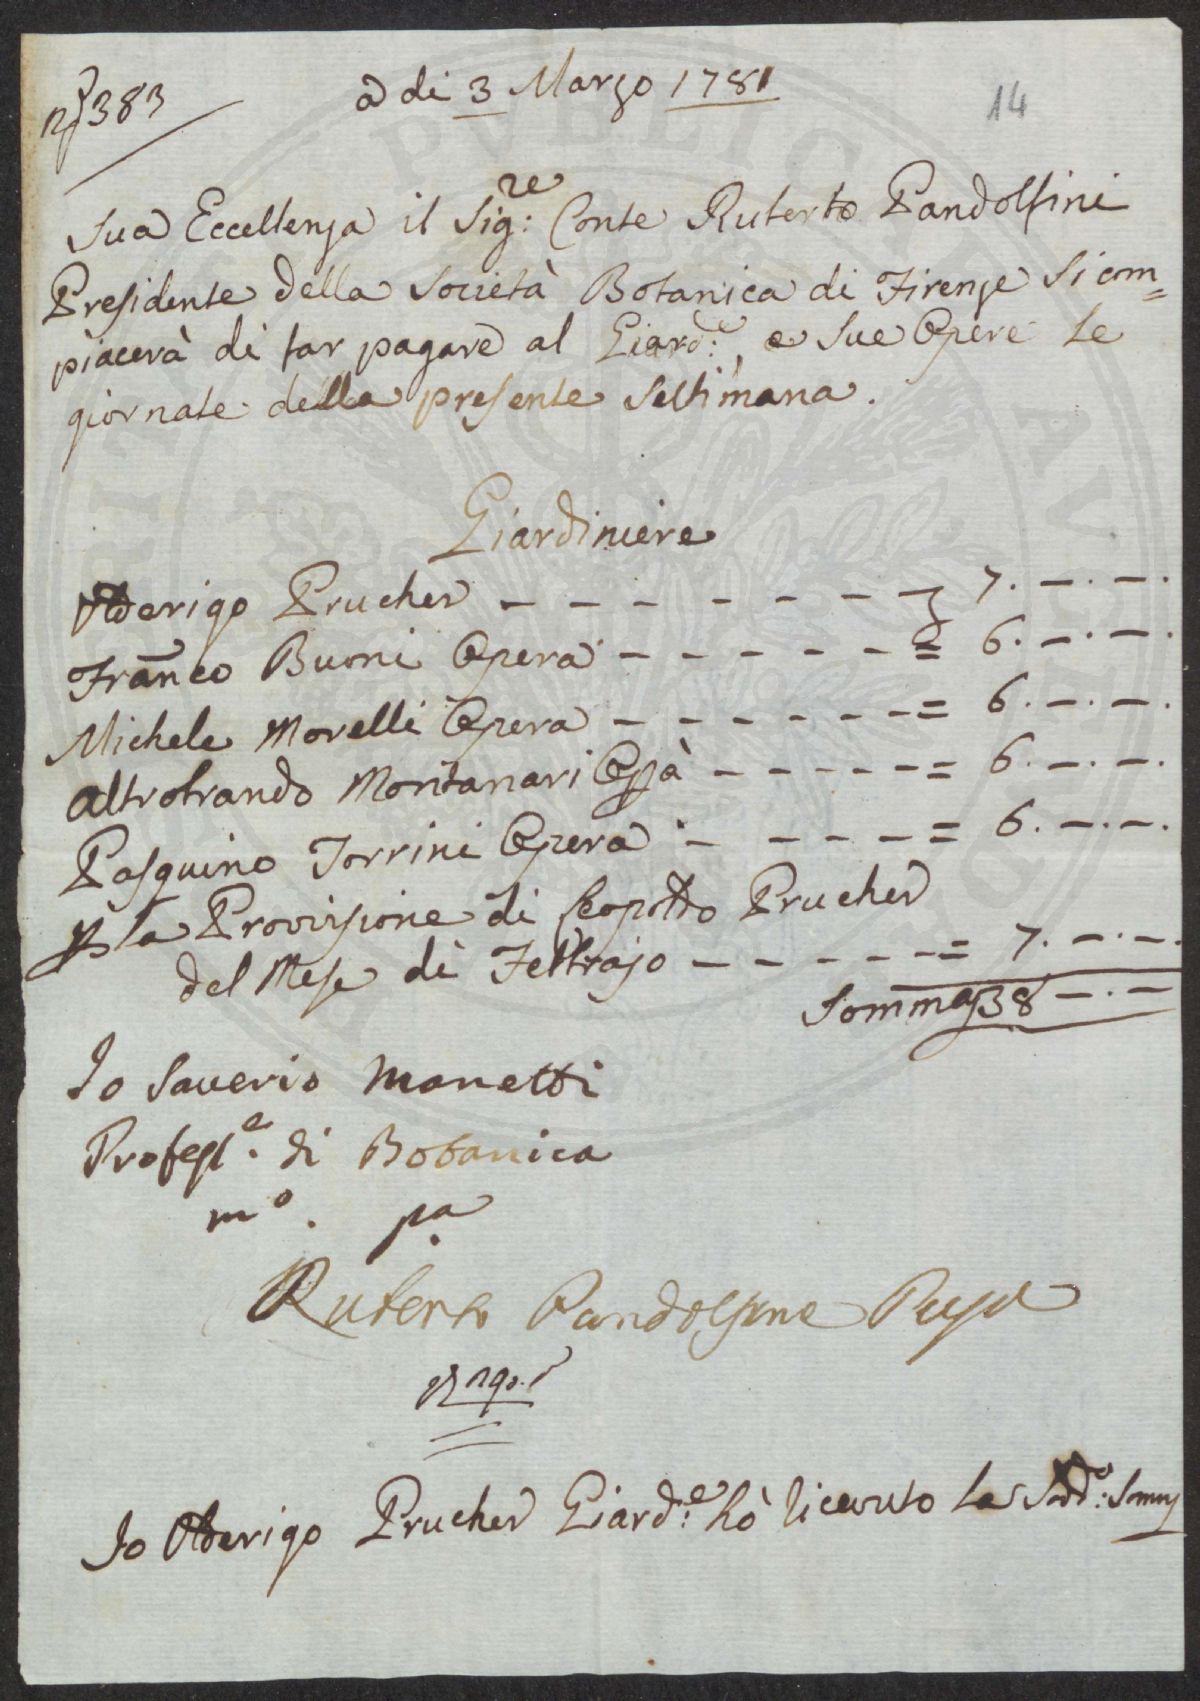 n.º 383
a di 3 Marzo 1781
14
Sua Eccellenza il Sig:re Conte Ruberto Pandolfini
Presidente della Società Botanica di Firenze si com=
piacerà di far pagare al Giard:e, e sue Opere le
giornate della presente Settimana.
Giardiniere
Odderigo Prucher - - - - - - - - 7. -. -.
Franco Buoni Opera - - - - - - = 6. -. -.
Michele Morelli Opera - - - - - - = 6. -. -.
Altrobrando Montanari Opa - - - - - = 6. -. -.
Pasquino Torrini Opera - - - - - = 6. -. -.
p la Provisione di Leopoldo Prucher
del Mese di Febbrajo - - - - - = 7. -. -.
Somma 38 -. -
Io Saverio Manetti
Profess.e di Botanica
mº. pa
Ruberto Pandolfini
Io Odderigo Prucher Giard:e hò ricevuto la Sodd:a Somma